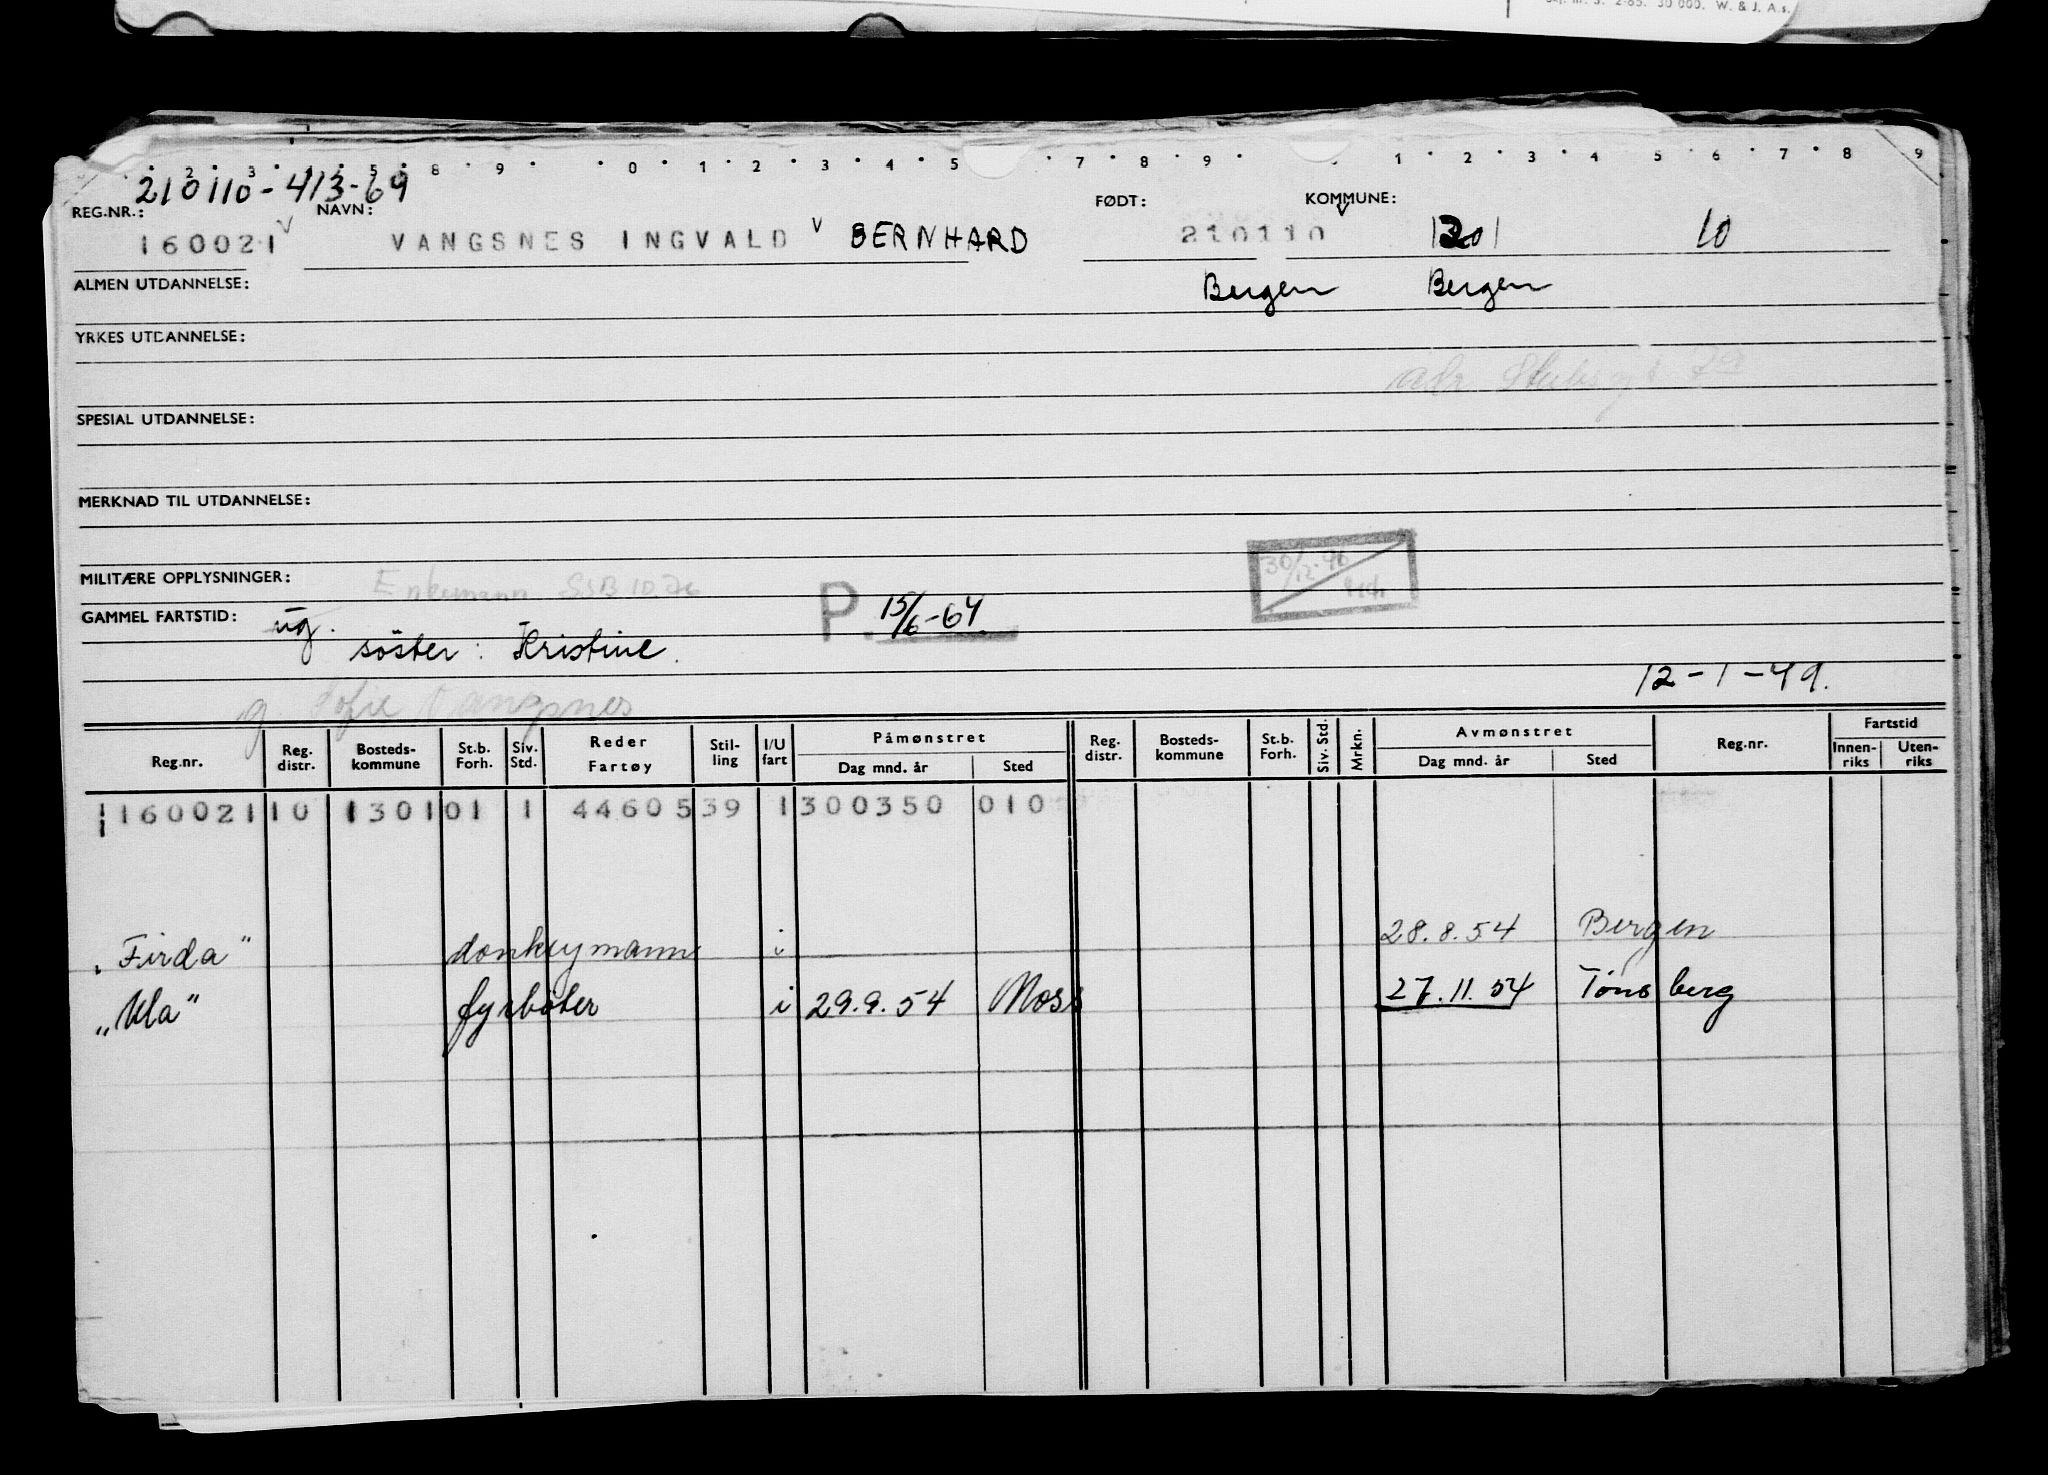 2-65. 30 000. W. & J. A.s.
2 3 4 5 8 9 0 1 2 3 4 5 7 8 9 1 2 3 4 5 6 7 8 9
210110-413-69
REG.NR.: NAVN: FØDT: KOMMUNE:
160021 VANGSNES INGVALD BERNHARD 210110 1301 10
ALMEN UTDANNELSE: Bergen Bergen
YRKES UTDANNELSE:
adr.
SPESIAL UTDANNELSE:
MERKNAD TIL UTDANNELSE:
30/12-46
MILITÆRE OPPLYSNINGER: Enkemann SSB 10 76
GAMMEL FARTSTID: ug. P. 15/6-64.
søster: Kristine.
12-1-49.
g. Sofie Vangsnes
Reg.nr. Reg. distr. Bosteds-kommune St.b. Forh. Siv. Std. Reder Fartøy Stil-ling I/U fart Påmønstret Dag mnd. år Sted Reg. distr. Bosteds-kommune St.b. Forh. Siv. Std. Mrkn. Avmønstret Dag mnd. år Sted Reg.nr. Fartstid Innen-riks Uten-riks
160021 10 1301 01 1 44605 39 1 300350 010
„Firda" donkeymann i 28.8.54 Bergen
„Ula" fyrbøter i 29.9.54 Moss 27.11.54 Tønsberg